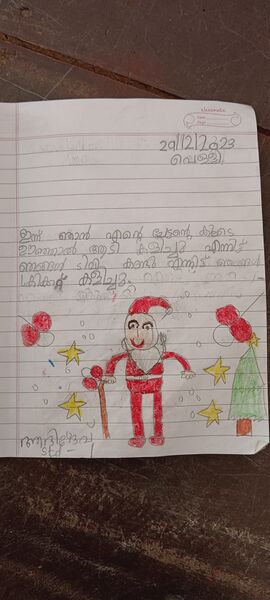 classmate
Date
Page
29/12/2023
വെള്ളി
ഇന്ന് ഞാൻ എന്റെ ചേട്ടന്റെ കൂടെ
ഊഞ്ഞാൽ ആടി കളിച്ചു എന്നിട്ട്
ഞങ്ങൾ ടിവി കണ്ടു എന്നിട്ട് ഞങ്ങൾ
ക്രിക്കറ്റ് കളിച്ചു.